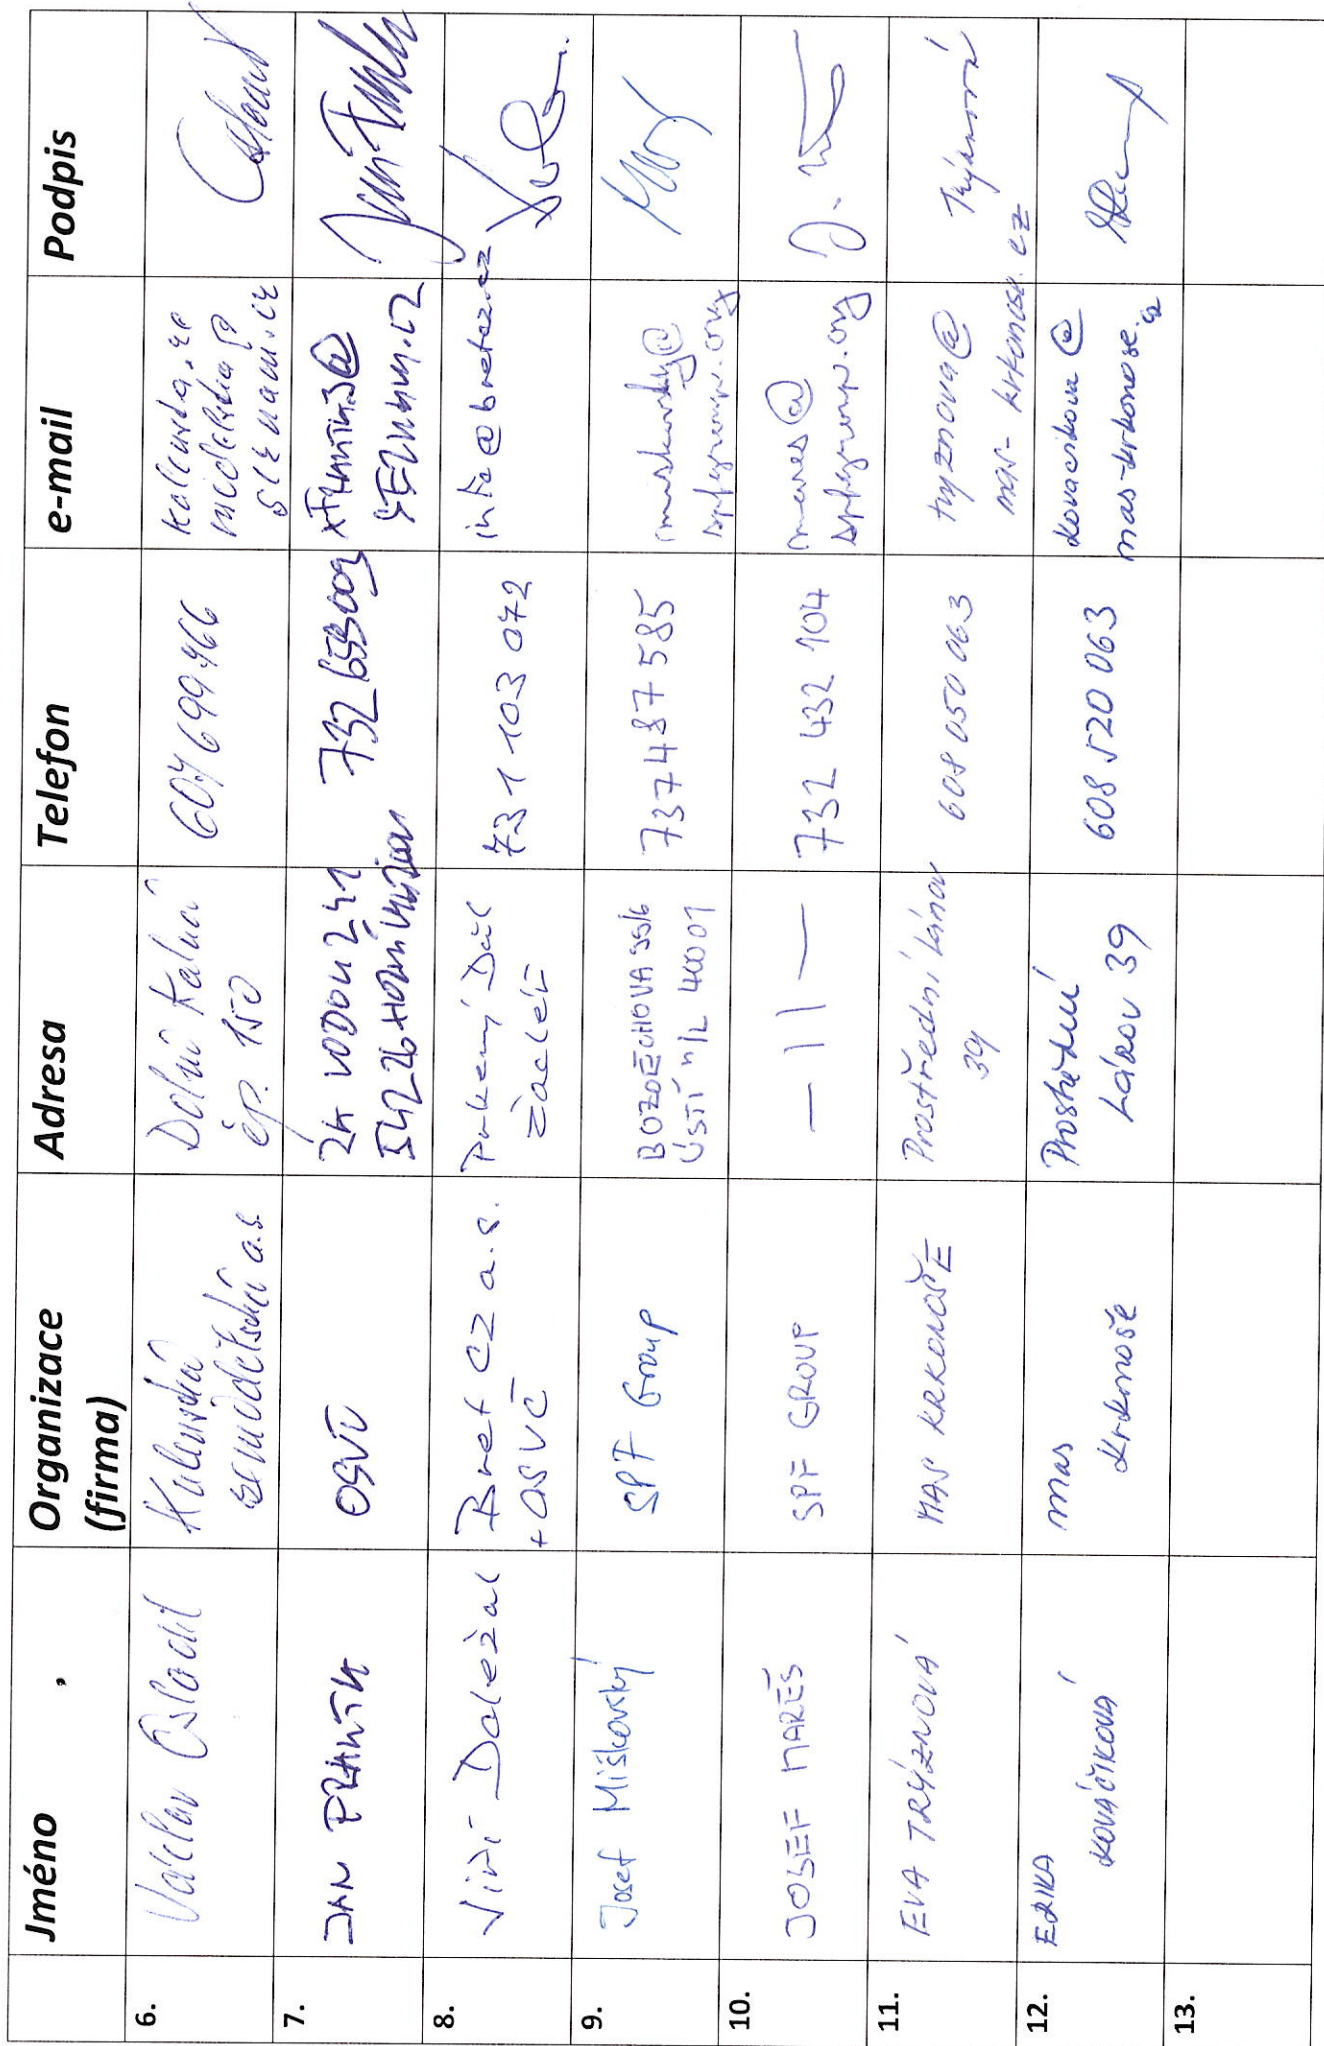 Jméno
Organizace
(firma)
Adresa
Telefon
e-mail
Podpis
6.
Václav Osladil
Kalenská
zemědělská a.s.
Dolní Kalná
čp. 150
607699466
kalenska.ze
@
seznam.cz
7.
JAN
OSVČ
ZA VODOU 241
542 26 HORNÍ
732 659 009
@
SEZNAM.CZ
8.
Jiří Doležal
Bret CZ a.s.
+ OSVČ
Prkenný Důl
Žacléř
731 103 072
info@bretcz.cz
9.
Josef Miškovský
SPF Group
BOZDĚCHOVA 99/6
ÚSTÍ n/L 40001
737487585
miskovsky@
spfgroup.org
10.
JOSEF MAREŠ
SPF GROUP
— 11 —
732 432 104
mares@
spfgroup.org
11.
EVA TRÝZNOVÁ
MAS KRKONOŠE
Prostřední Lánov
39
608 050 063
tryznova@
mas-krkonose.cz
Trýznová
12.
ERIKA
KOVÁČIKOVÁ
MAS
Krkonoše
Prostřední
Lánov 39
608 520 063
kovacikova@
mas-krkonose.cz
13.